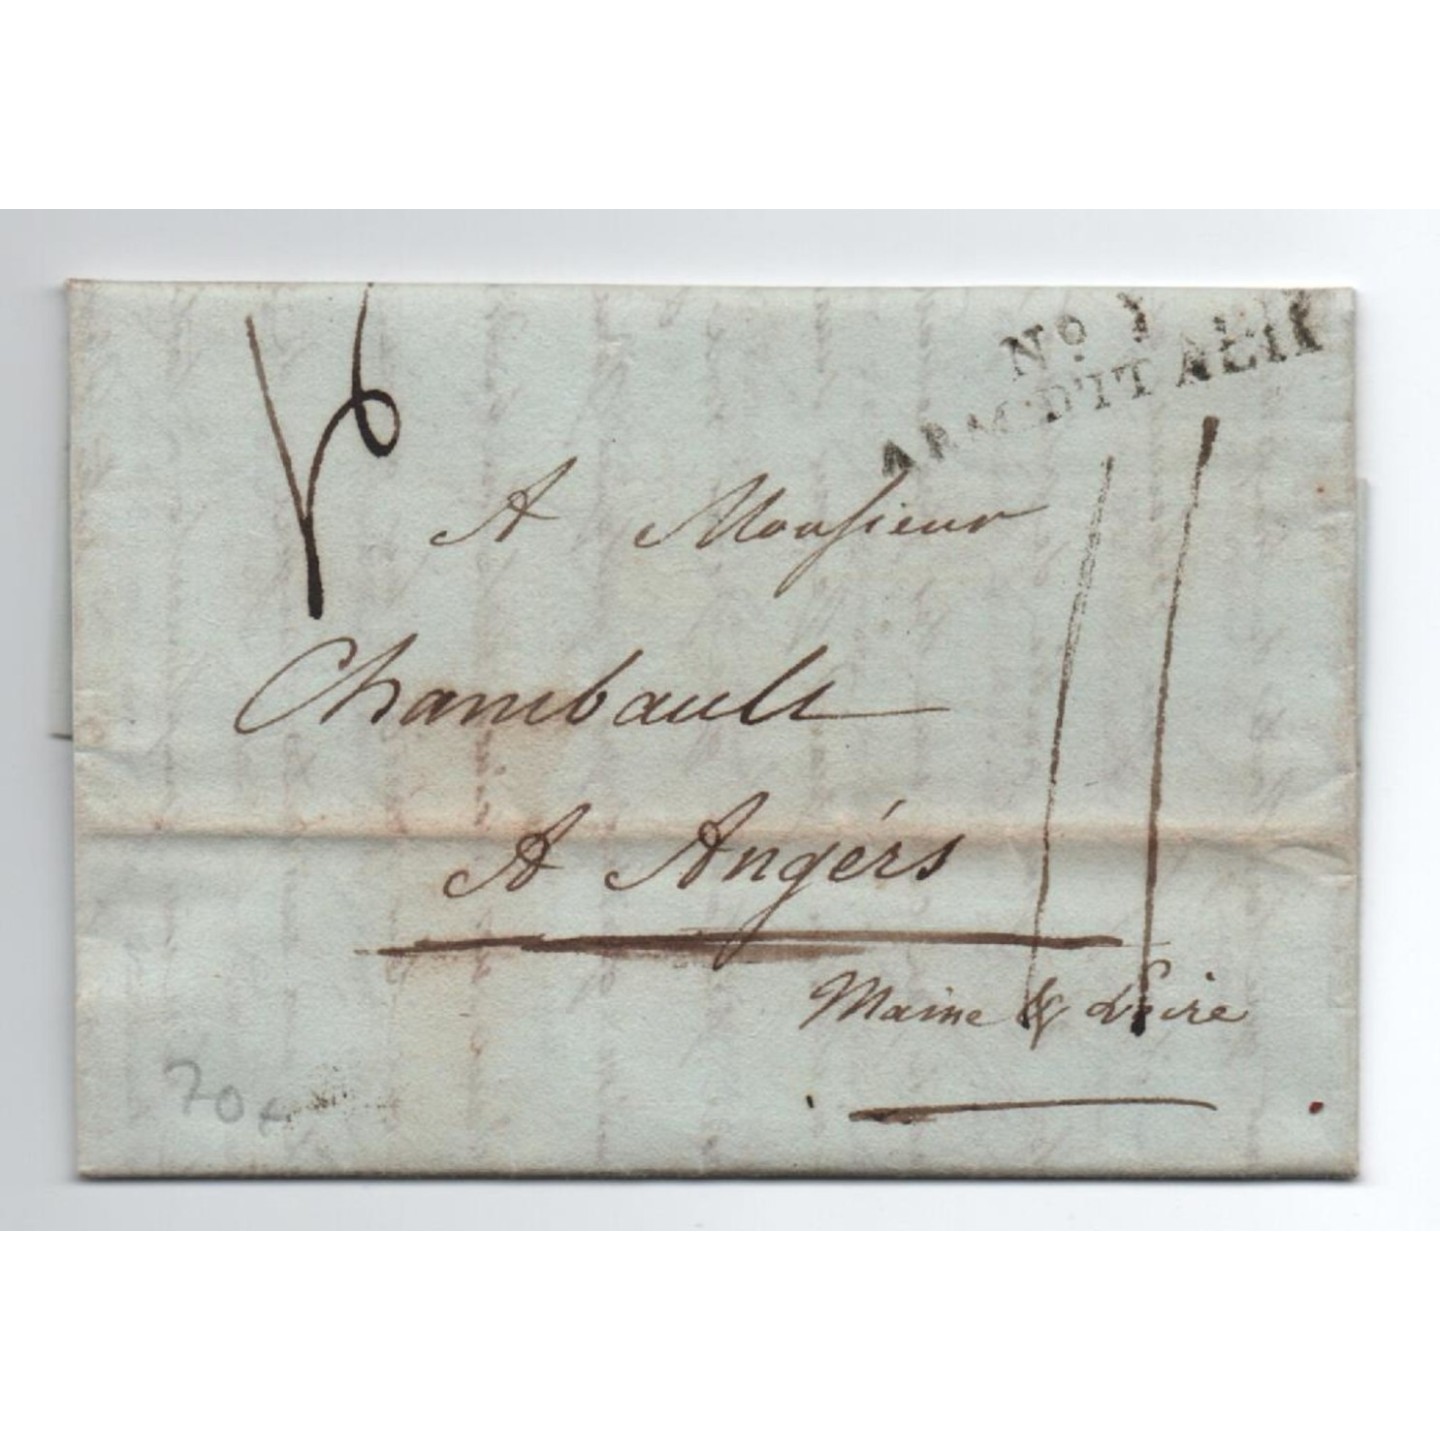 No 1
ARM.D'ITALIE
A Monsieur
Chambault
A Angérs
Maine & Loire
70